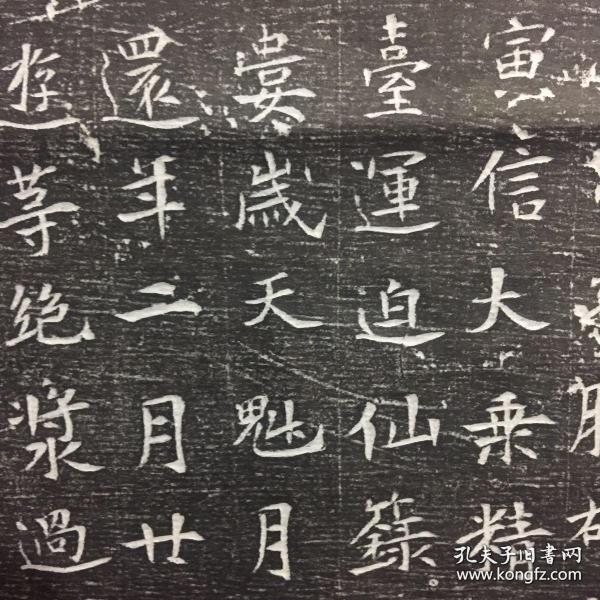 寅信大乗精
臺運迫仙籙
婁歳天魁月
還年二月廿
遊等絶漿過
孔夫子旧書网
www.kongfz.com